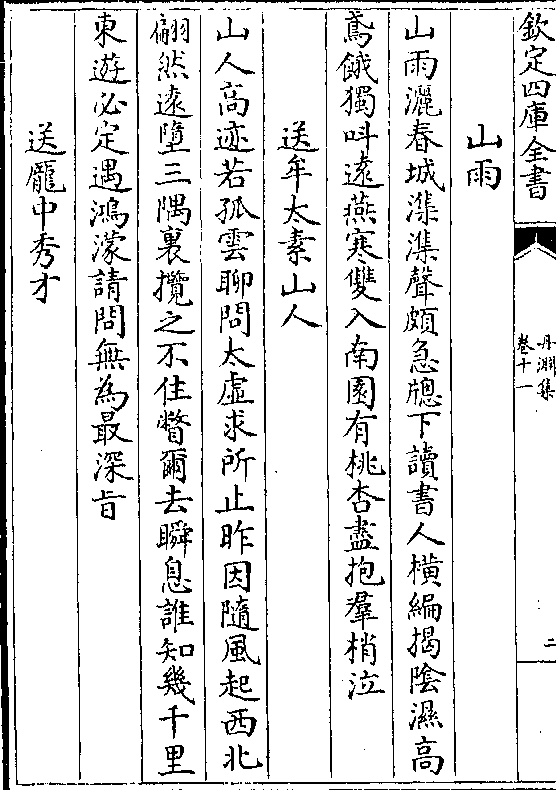 欽定四庫全書
丹淵集
卷十一
二
山雨
山雨灑春城濼濼聲頗急牕下讀書人橫編揭陰濕高
鳶餓獨呌遠燕寒雙入南園有桃杏盡抱羣梢泣
送牟太素山人
山人高迹若孤雲聊問太虛求所止昨因隨風起西北
翩然遠墮三隅裏攬之不住瞥爾去瞬息誰知幾千里
東遊必定遇鴻濛請問無為最深旨
送龎中秀才